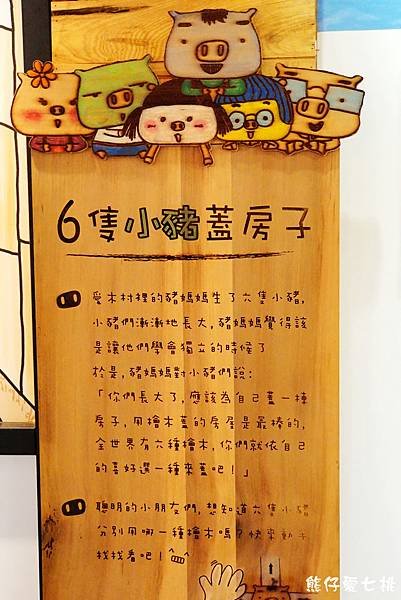 6隻小豬蓋房子
愛木村裡的豬媽媽生了六隻小豬,
小豬們漸漸地長大,豬媽媽覺得該
是讓他們學會獨立的時候了
於是,豬媽媽對小豬們說:
「你們長大了,應該為自己蓋一棟
房子,用檜木蓋的房屋是最棒的,
全世界有六種檜木,你們就依自己
的喜好選一種來蓋吧!」
聰明的小朋友們,想知道六隻小豬
分別用哪一種檜木嗎?快來動手
找找看吧!
熊仔愛七桃